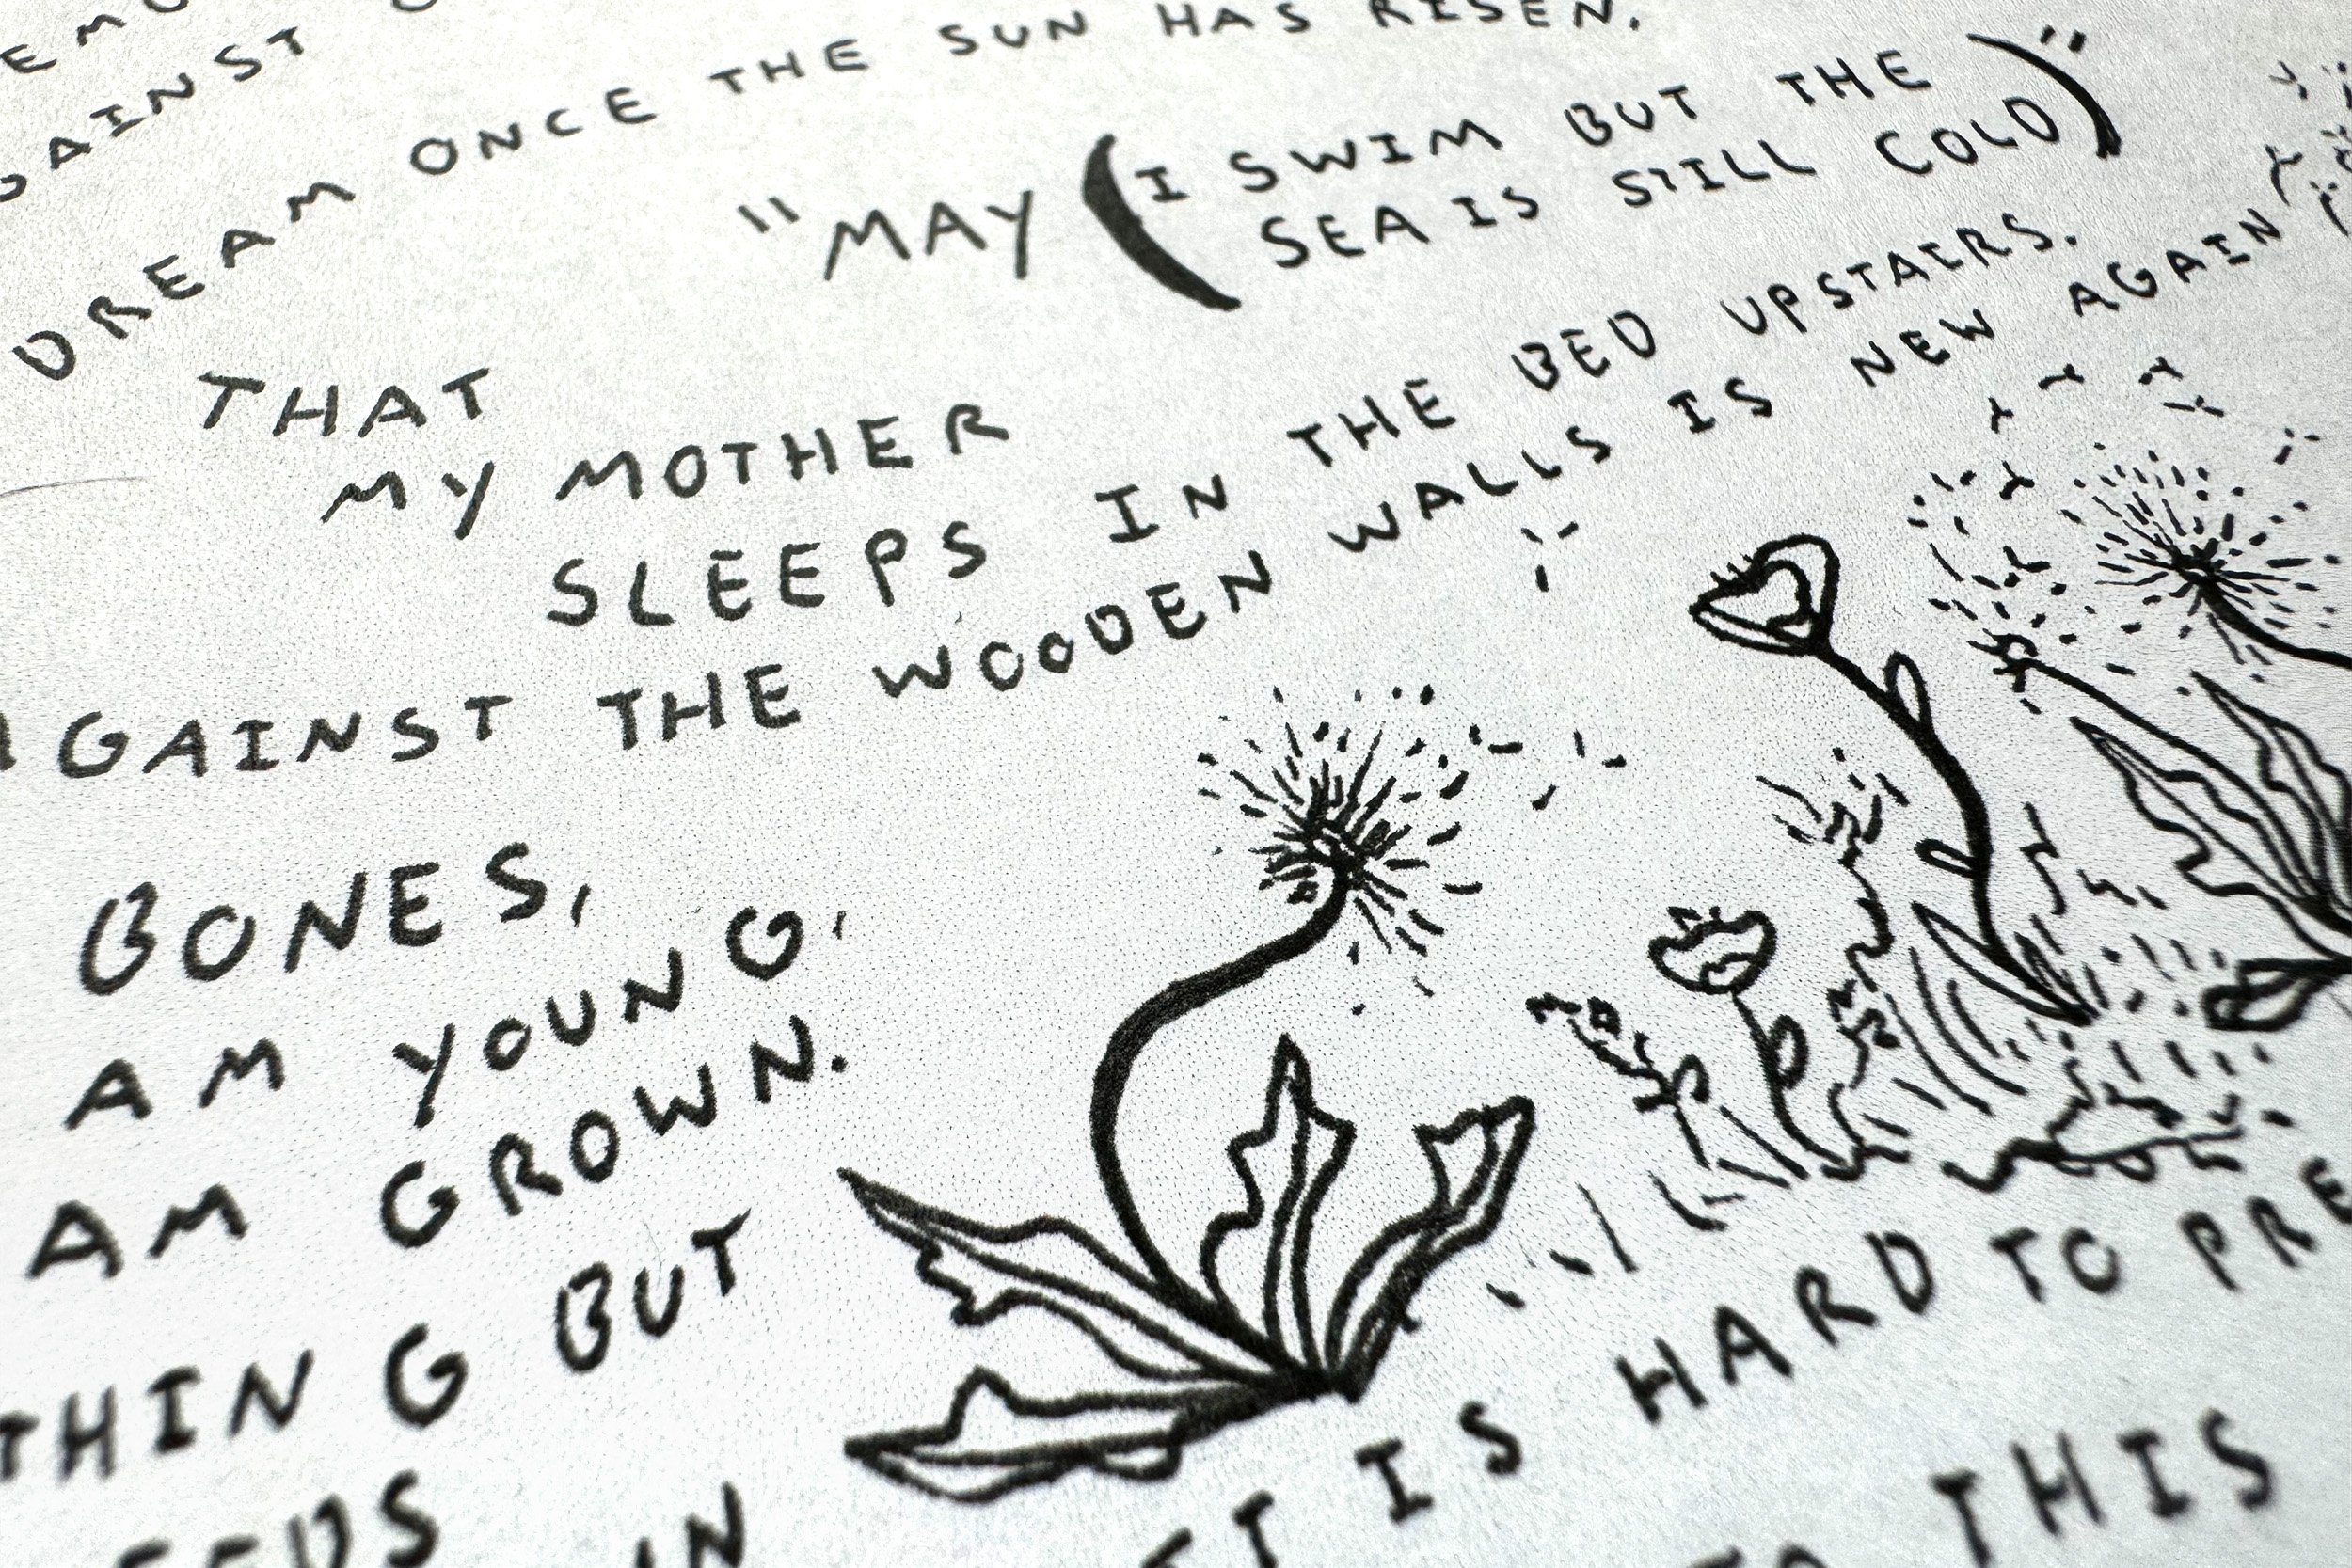 AGAINST
DREAM ONCE THE SUN HAS RISEN.
"MAY (I SWIM BUT THE
SEA IS STILL COLD)"
THAT
MY MOTHER
SLEEPS IN THE BED UPSTAIRS.
AGAINST THE WOODEN WALLS IS NEW AGAIN
BONES,
AM YOUNG,
AM GROWN.
THING BUT
IN
IT IS HARD TO PRE
THIS